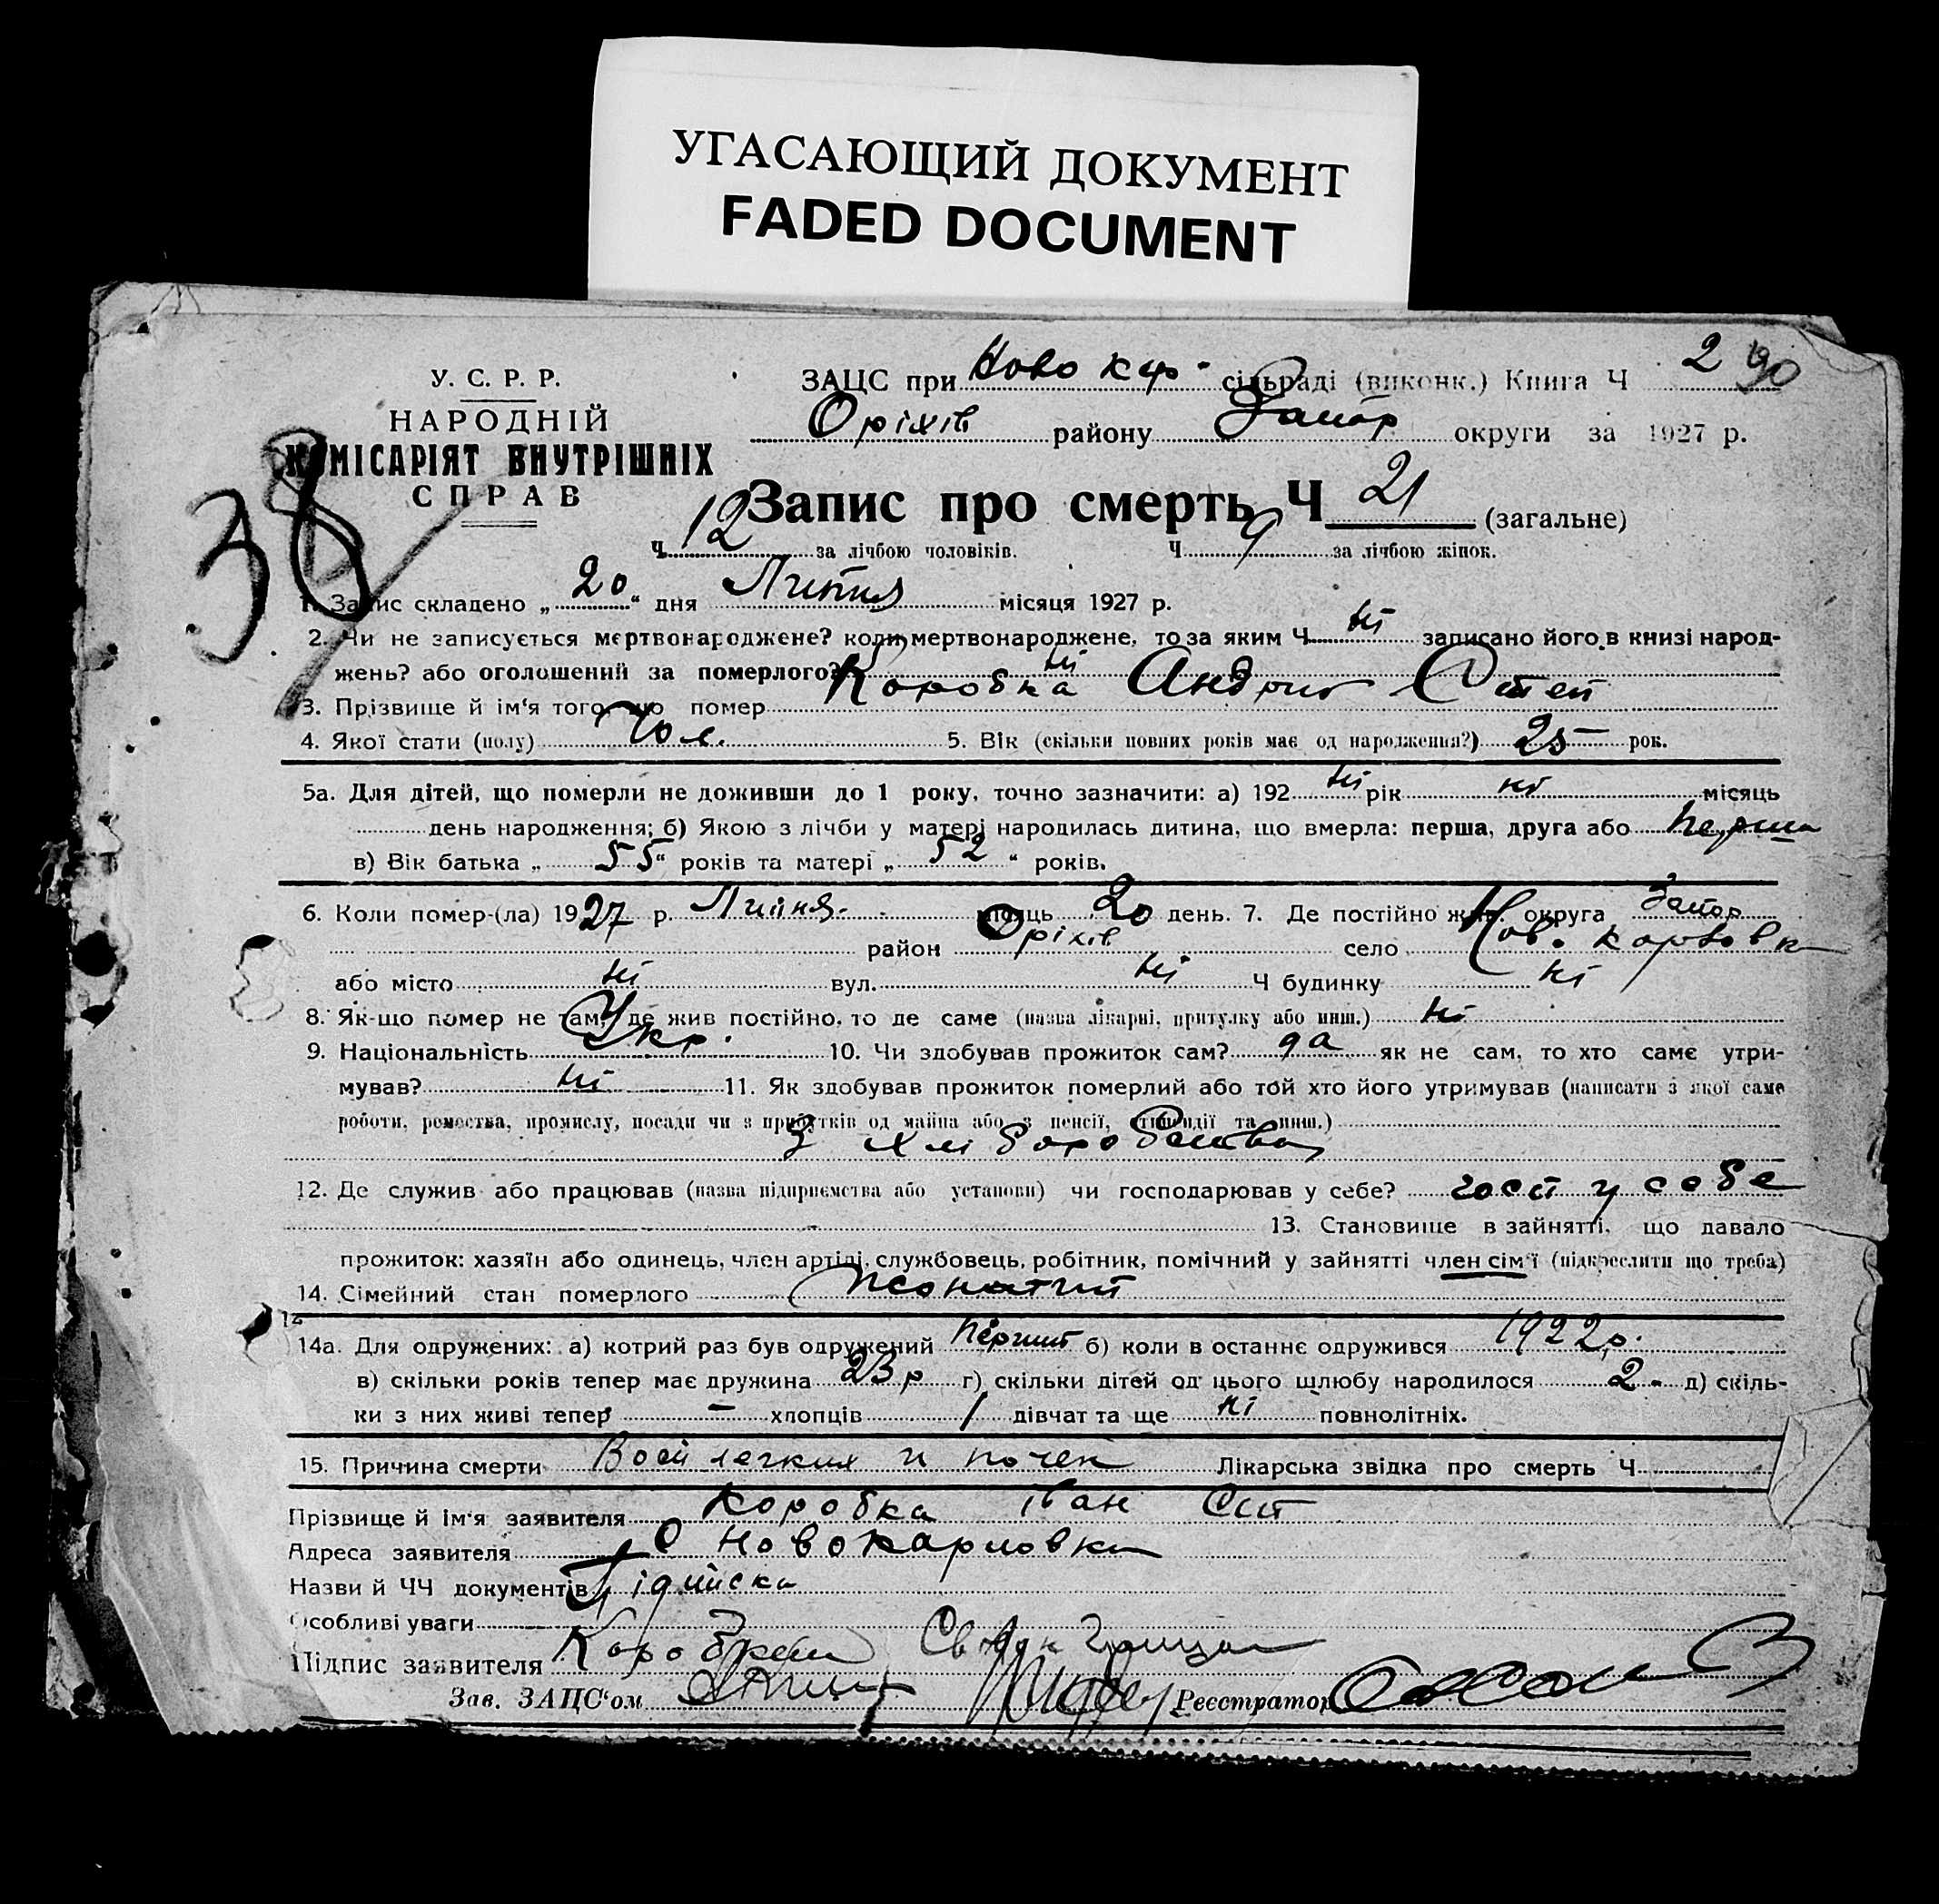 УГАСАЮЩИЙ ДОКУМЕНТ
FADED DOCUMENT
У. С. Р. Р.
НАРОДНІЙ
КОМІСАРІЯТ ВНУТРІШНІХ
СПРАВ
38
ЗАЦС при Ново кар. сільраді (виконк.) Книга Ч 2 90
Оріхів району Запор округи за 1927 р.
Запис про смерть Ч 21 (загальне)
Ч. 12 за лічбою чоловіків. Ч. 9 за лічбою жінок.
1. Запис складено „ 20 “ дня Липня місяця 1927 р.
2. Чи не записується мертвонароджене? коли мертвонароджене, то за яким Ч. ні записано його в книзі народ-
жень? або оголошений за померлого? ні
3. Прізвище й ім‘я того, що помер Коробка Андрій Степ
4. Якої стати (полу) Чол. 5. Вік (скільки повних років має од народження?) 25 рок.
5а. Для дітей, що померли не доживши до 1 року, точно зазначити: а) 192 ні рік ні місяць
день народження; б) Якою з лічби у матері народилась дитина, що вмерла: перша, друга або перша
в) Вік батька „ 55 “ років та матері „ 52 “ років.
6. Коли помер-(ла) 1927 р. Липня місяць 20 день. 7. Де постійно жив: округа Запор
район Оріхів село Нов. карловка
або місто ні вул. ні Ч будинку ні
8. Як-що помер не там, де жив постійно, то де саме (назва лікарні, притулку або инш.) ні
9. Національність Укр. 10. Чи здобував прожиток сам? да як не сам, то хто саме утри-
мував? ні 11. Як здобував прожиток померлий або той хто його утримував (написати з якої саме
роботи, ремества, промислу, посади чи з прибутків од майна або з пенсії, стипендії та инш.)
З хліборобства
12. Де служив або працював (назва підприємства або установи) чи господарював у себе? госп у себе
13. Становище в зайнятті, що давало
прожиток: хазяїн або одинець, член артілі, службовець, робітник, помічний у зайнятті член сім‘ї (підкреслити що треба)
14. Сімейний стан померлого жонатий
14а. Для одружених: а) котрий раз був одружений перший б) коли в останнє одружився 1922 р.
в) скільки років тепер має дружина 23 р г) скільки дітей од цього шлюбу народилося 2 д) скіль-
ки з них живі тепер – хлопців 1 дівчат та ще ні повнолітніх.
15. Причина смерти Восп легких и почек Лікарська звідка про смерть Ч.
Прізвище й ім‘я заявителя Коробка іван Ст
Адреса заявителя С Новокарловка
Назви й ЧЧ документів Підписка
Особливі уваги
Підпис заявителя
Зав. ЗАЦС‘ом Реєстратор